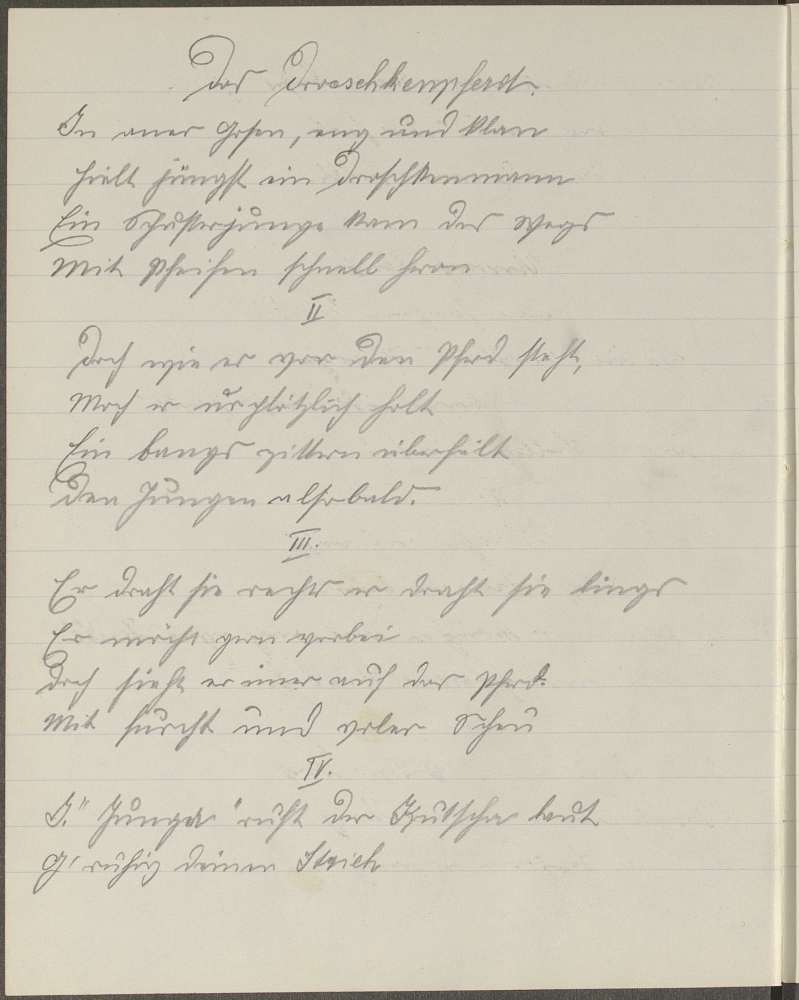 Das Droschkenpferd.
In aner Gosen, eng und klan
hielt jüngst ein Droschkenmann
Ein Schusterjunge kam des Wegs
Mit Pfeifen schnell heran
II
Doch wie er vor den Pferd steht,
Mach er urplötzlich halt
Ein bangs zittern überfält
Den Jungen alsobald.
III.
Er draht sie rechts er draht sie lings
Er möcht gern vorbei
Doch sieht er imer auf das Pferd.
Mit furcht und voler Scheu
IV.
"Junge" ruft der Kutscher laut
G' ruhig deinen Strich